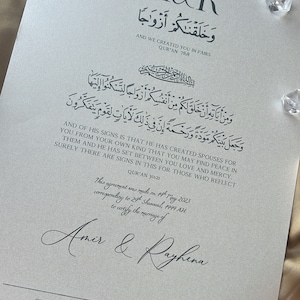 & R
وَخَلَقْنَاكُمْ أَزْوَاجًا
AND WE CREATED YOU IN PAIRS
QUR'AN 78:8
وَمِنْ آيَاتِهِ أَنْ خَلَقَ لَكُمْ مِنْ أَنْفُسِكُمْ أَزْوَاجًا لِتَسْكُنُوا إِلَيْهَا
وَجَعَلَ بَيْنَكُمْ مَوَدَّةً وَرَحْمَةً إِنَّ فِي ذَلِكَ لَآيَاتٍ لِقَوْمٍ يَتَفَكَّرُونَ
AND OF HIS SIGNS IS THAT HE HAS CREATED SPOUSES FOR
YOU FROM YOUR OWN KIND THAT YOU MAY FIND PEACE IN
THEM AND HE HAS SET BETWEEN YOU LOVE AND MERCY.
SURELY THERE ARE SIGNS IN THIS FOR THOSE WHO REFLECT
QUR'AN 30:21
This agreement was made on 19th May 2023
corresponding to 29th Shawwal, 1444 AH
to certify the marriage of
Amer & Rayhena